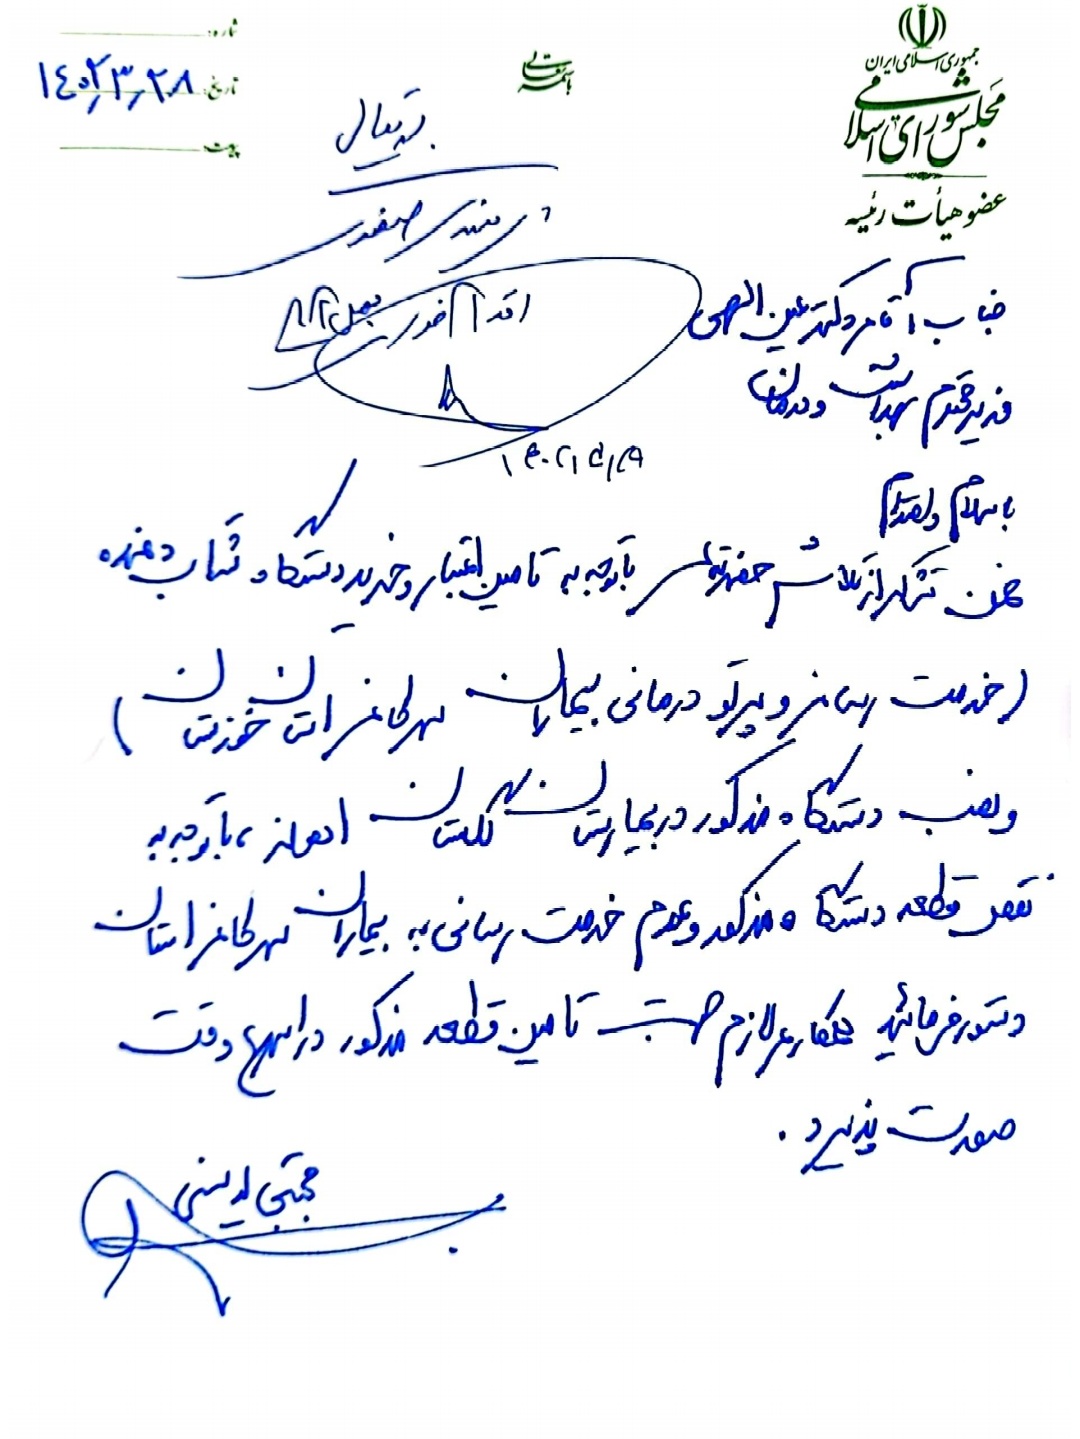 جمهوری اسلامی ایران
مجلس شورای اسلامی
عضو هیأت رئیسه
باسمه تعالی
شماره:
تاریخ: ۱۴۰۲٫۳٫۲۸
پیوست:
بسمه تعالی
۱۴۰۲/۵/۹
جناب آقای دکتر عین اللهی
وزیر محترم بهداشت و درمان
با سلام و احترام
ضمن تشکر از تلاش حضرتعالی با توجه به تامین اعتبار و خرید دستگاه شتاب دهنده
(خدمت رسانی و پرتو درمانی بیماران سرطانی استان خوزستان)
و نصب دستگاه مذکور در بیمارستان گلستان اهواز، با توجه به
نقص قطعه دستگاه مذکور و عدم خدمت رسانی به بیماران سرطانی استان
دستور فرمائید همکاری لازم جهت تامین قطعه مذکور در اسرع وقت
صورت پذیرد.
مجتبی یوسفی